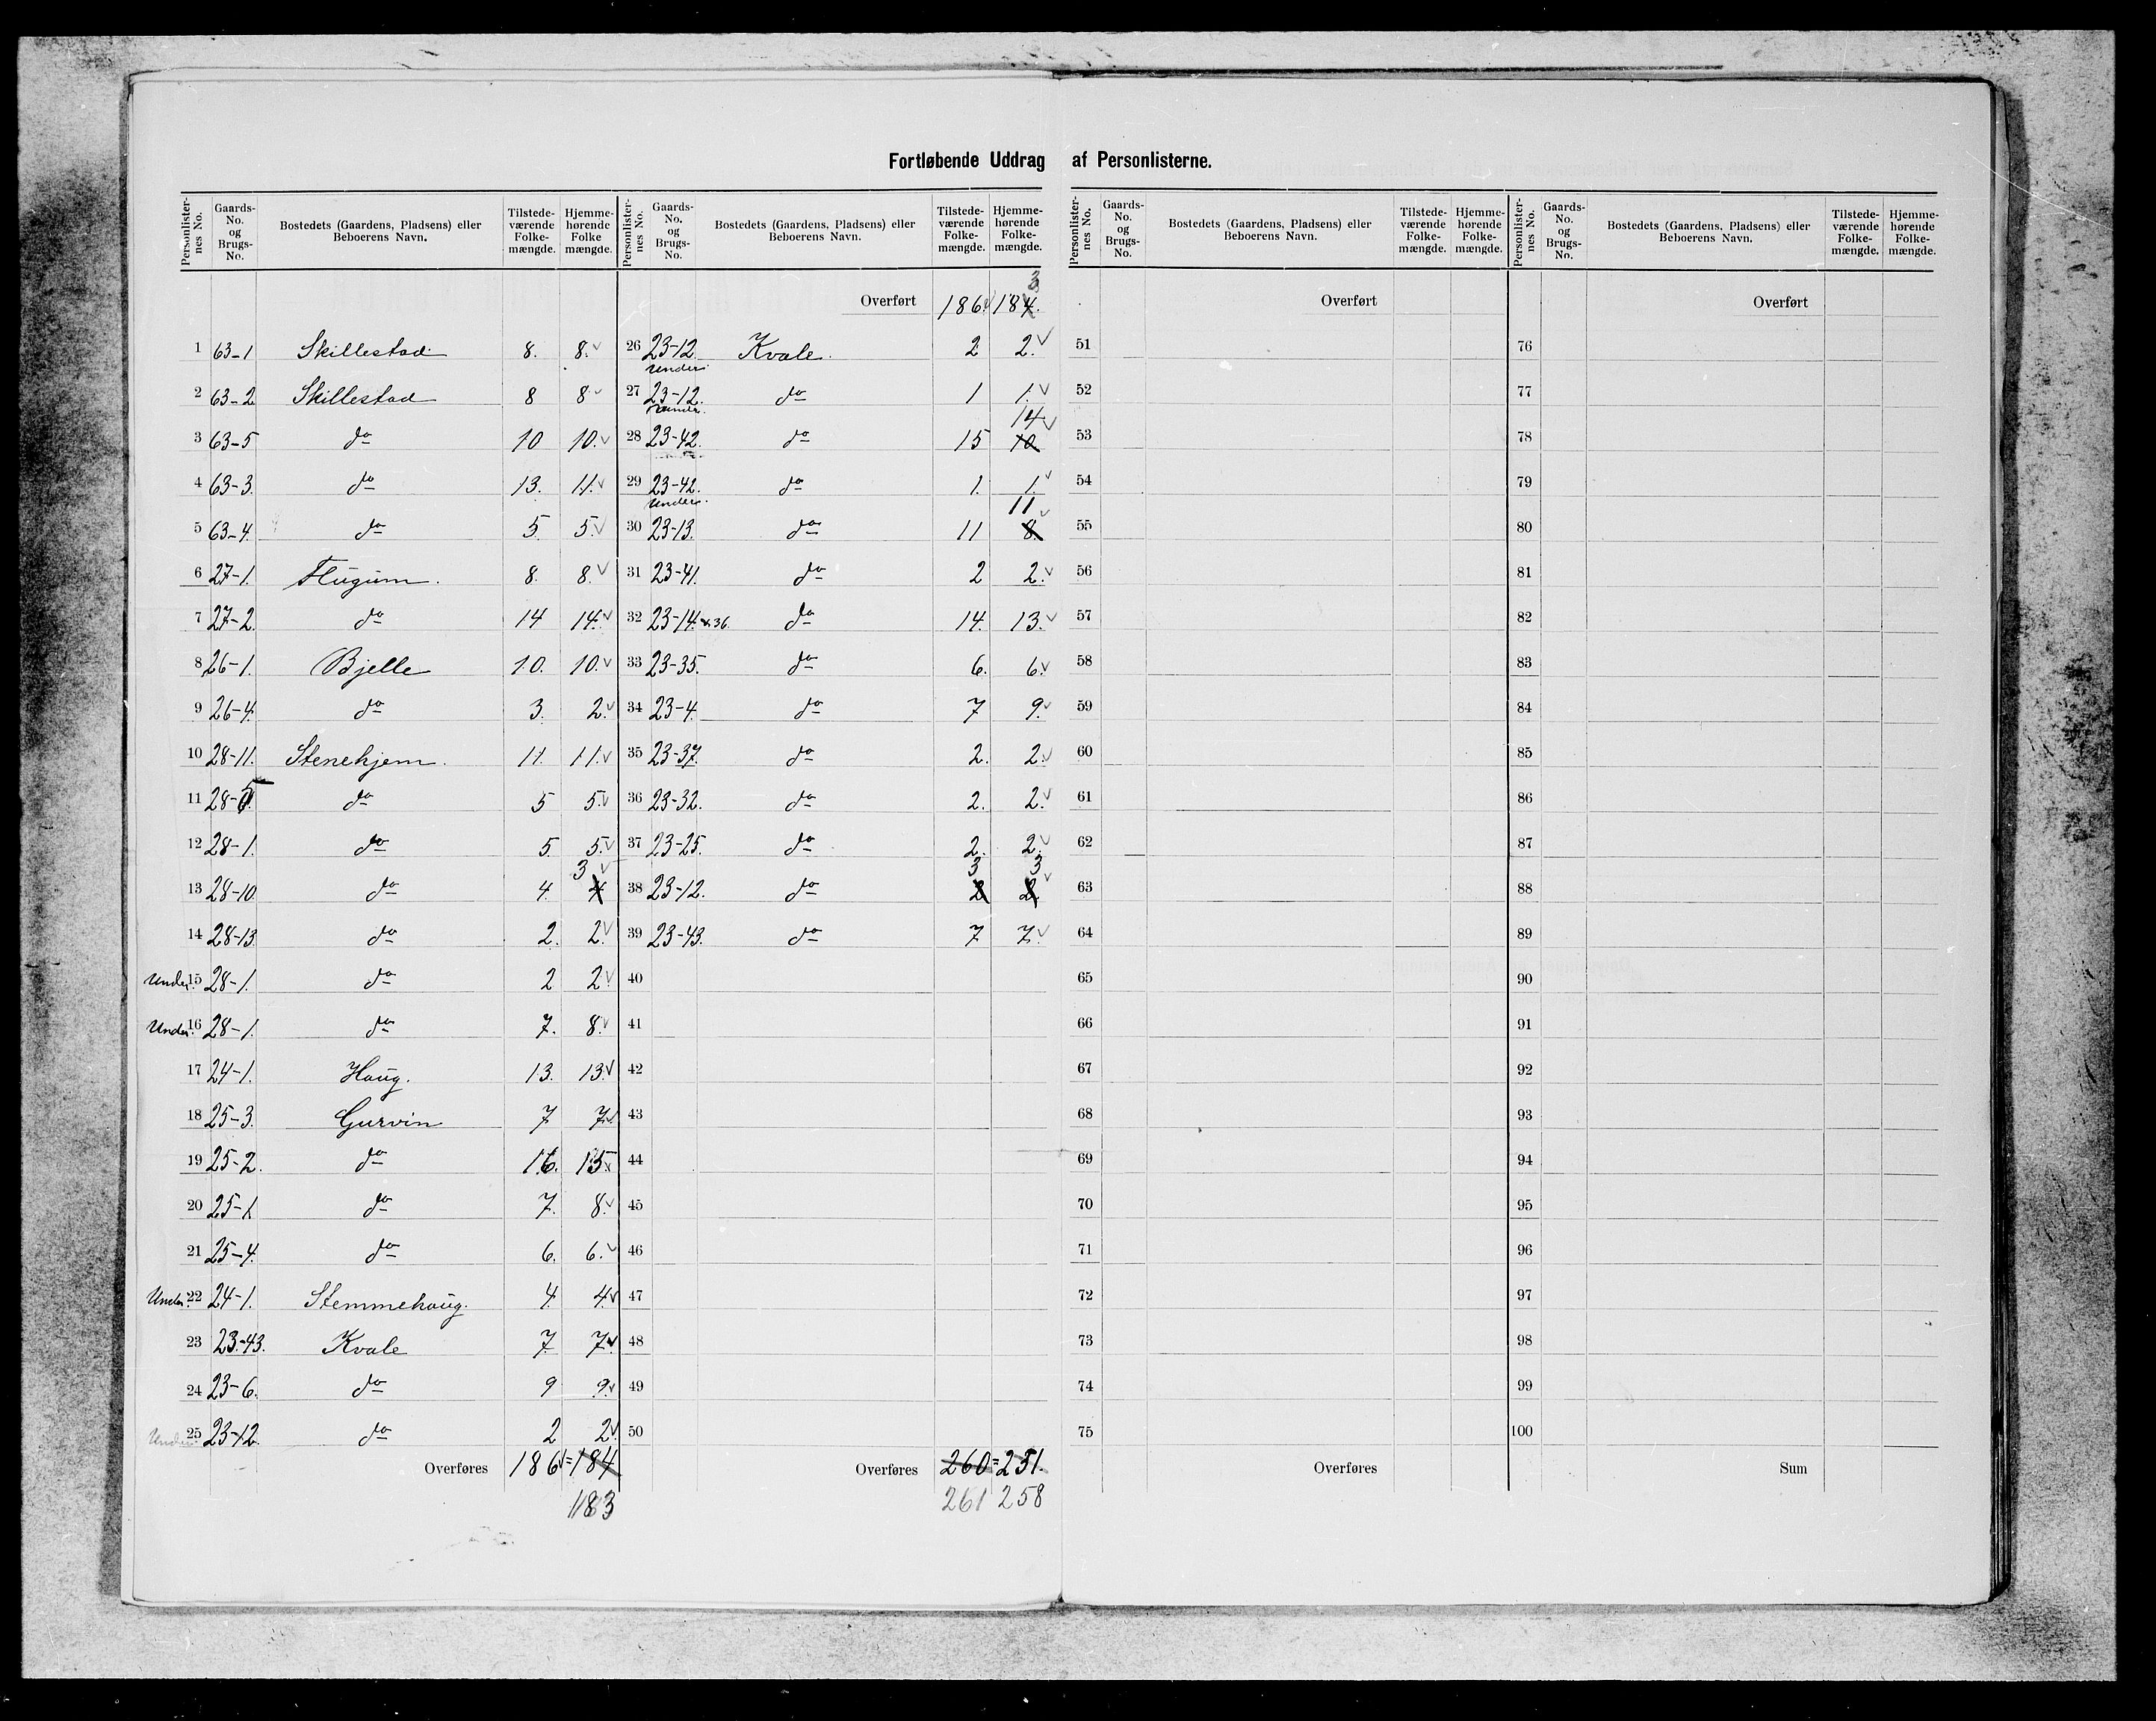 Fortløbende Uddrag af Personlisterne.
Personlister-nes No. | Gaards-No. og Brugs-No. | Bostedets (Gaardens, Pladsens) eller Beboerens Navn. | Tilstede-værende Folke-mængde. | Hjemme-hørende Folke mængde.
1 63-1 Skillestad 8. 8.
2 63-2 Skillestad 8 8
3 63-5 do 10 10.
4 63-3. do 13. 11.
5 63-4. do 5. 5.
6 27-1. Flugum. 8. 8.
7 27-2. do 14 14.
8 26-1. Bjelle 10. 10.
9 26-4. do 3. 2.
10 28-11. Stenehjem. 11. 11.
11 28-5 do 5 5.
12 28-1. do 5. 5.
13 28-10. do 4. 4 3
14 28-13. do 2. 2.
Under. 15 28-1. do 2 2.
Under. 16 28-1. do 7. 8.
17 24-1. Haug. 13. 13.
18 25-3. Gurvin 7 7.
19 25-2. do 16. 15.
20 25-1. do 7. 8.
21 25-4. do 6. 6.
Under. 22 24-1. Stemmehaug. 4. 4.
23 23-43. Kvale 7. 7.
24 23-6. do 9 9.
Under. 25 23-12. do 2 2.
Overføres 186 = 184
183
Personlister-nes No. | Gaards-No. og Brugs-No. | Bostedets (Gaardens, Pladsens) eller Beboerens Navn. | Tilstede-værende Folke-mængde. | Hjemme-hørende Folke-mængde.
Overført 186. 184. 3
26 23-12. Kvale. 2 2.
Under.
27 23-12. do 1 1.
Under.
28 23-42. do 15 10 14
29 23-42. do 1. 1.
Under.
30 23-13. do 11 8. 11
31 23-41. do 2 2.
32 23-14. 36. do 14. 13.
33 23-35. do 6. 6.
34 23-4. do 7 9.
35 23-37. do 2. 2.
36 23-32. do 2. 2.
37 23-25. do 2. 2.
38 23-12. do 2 3 2 3
39 23-43. do 7 7.
40
41
42
43
44
45
46
47
48
49
50
Overføres 260 = 251.
261 258
Personlister-nes No. | Gaards-No. og Brugs-No. | Bostedets (Gaardens, Pladsens) eller Beboerens Navn. | Tilstede-værende Folke-mængde. | Hjemme-hørende Folke-mængde.
Overført
51
52
53
54
55
56
57
58
59
60
61
62
63
64
65
66
67
68
69
70
71
72
73
74
75
Overføres
Personlister-nes No. | Gaards-No. og Brugs-No. | Bostedets (Gaardens, Pladsens) eller Beboerens Navn. | Tilstede-værende Folke-mængde. | Hjemme-hørende Folke-mængde.
Overført
76
77
78
79
80
81
82
83
84
85
86
87
88
89
90
91
92
93
94
95
96
97
98
99
100
Sum